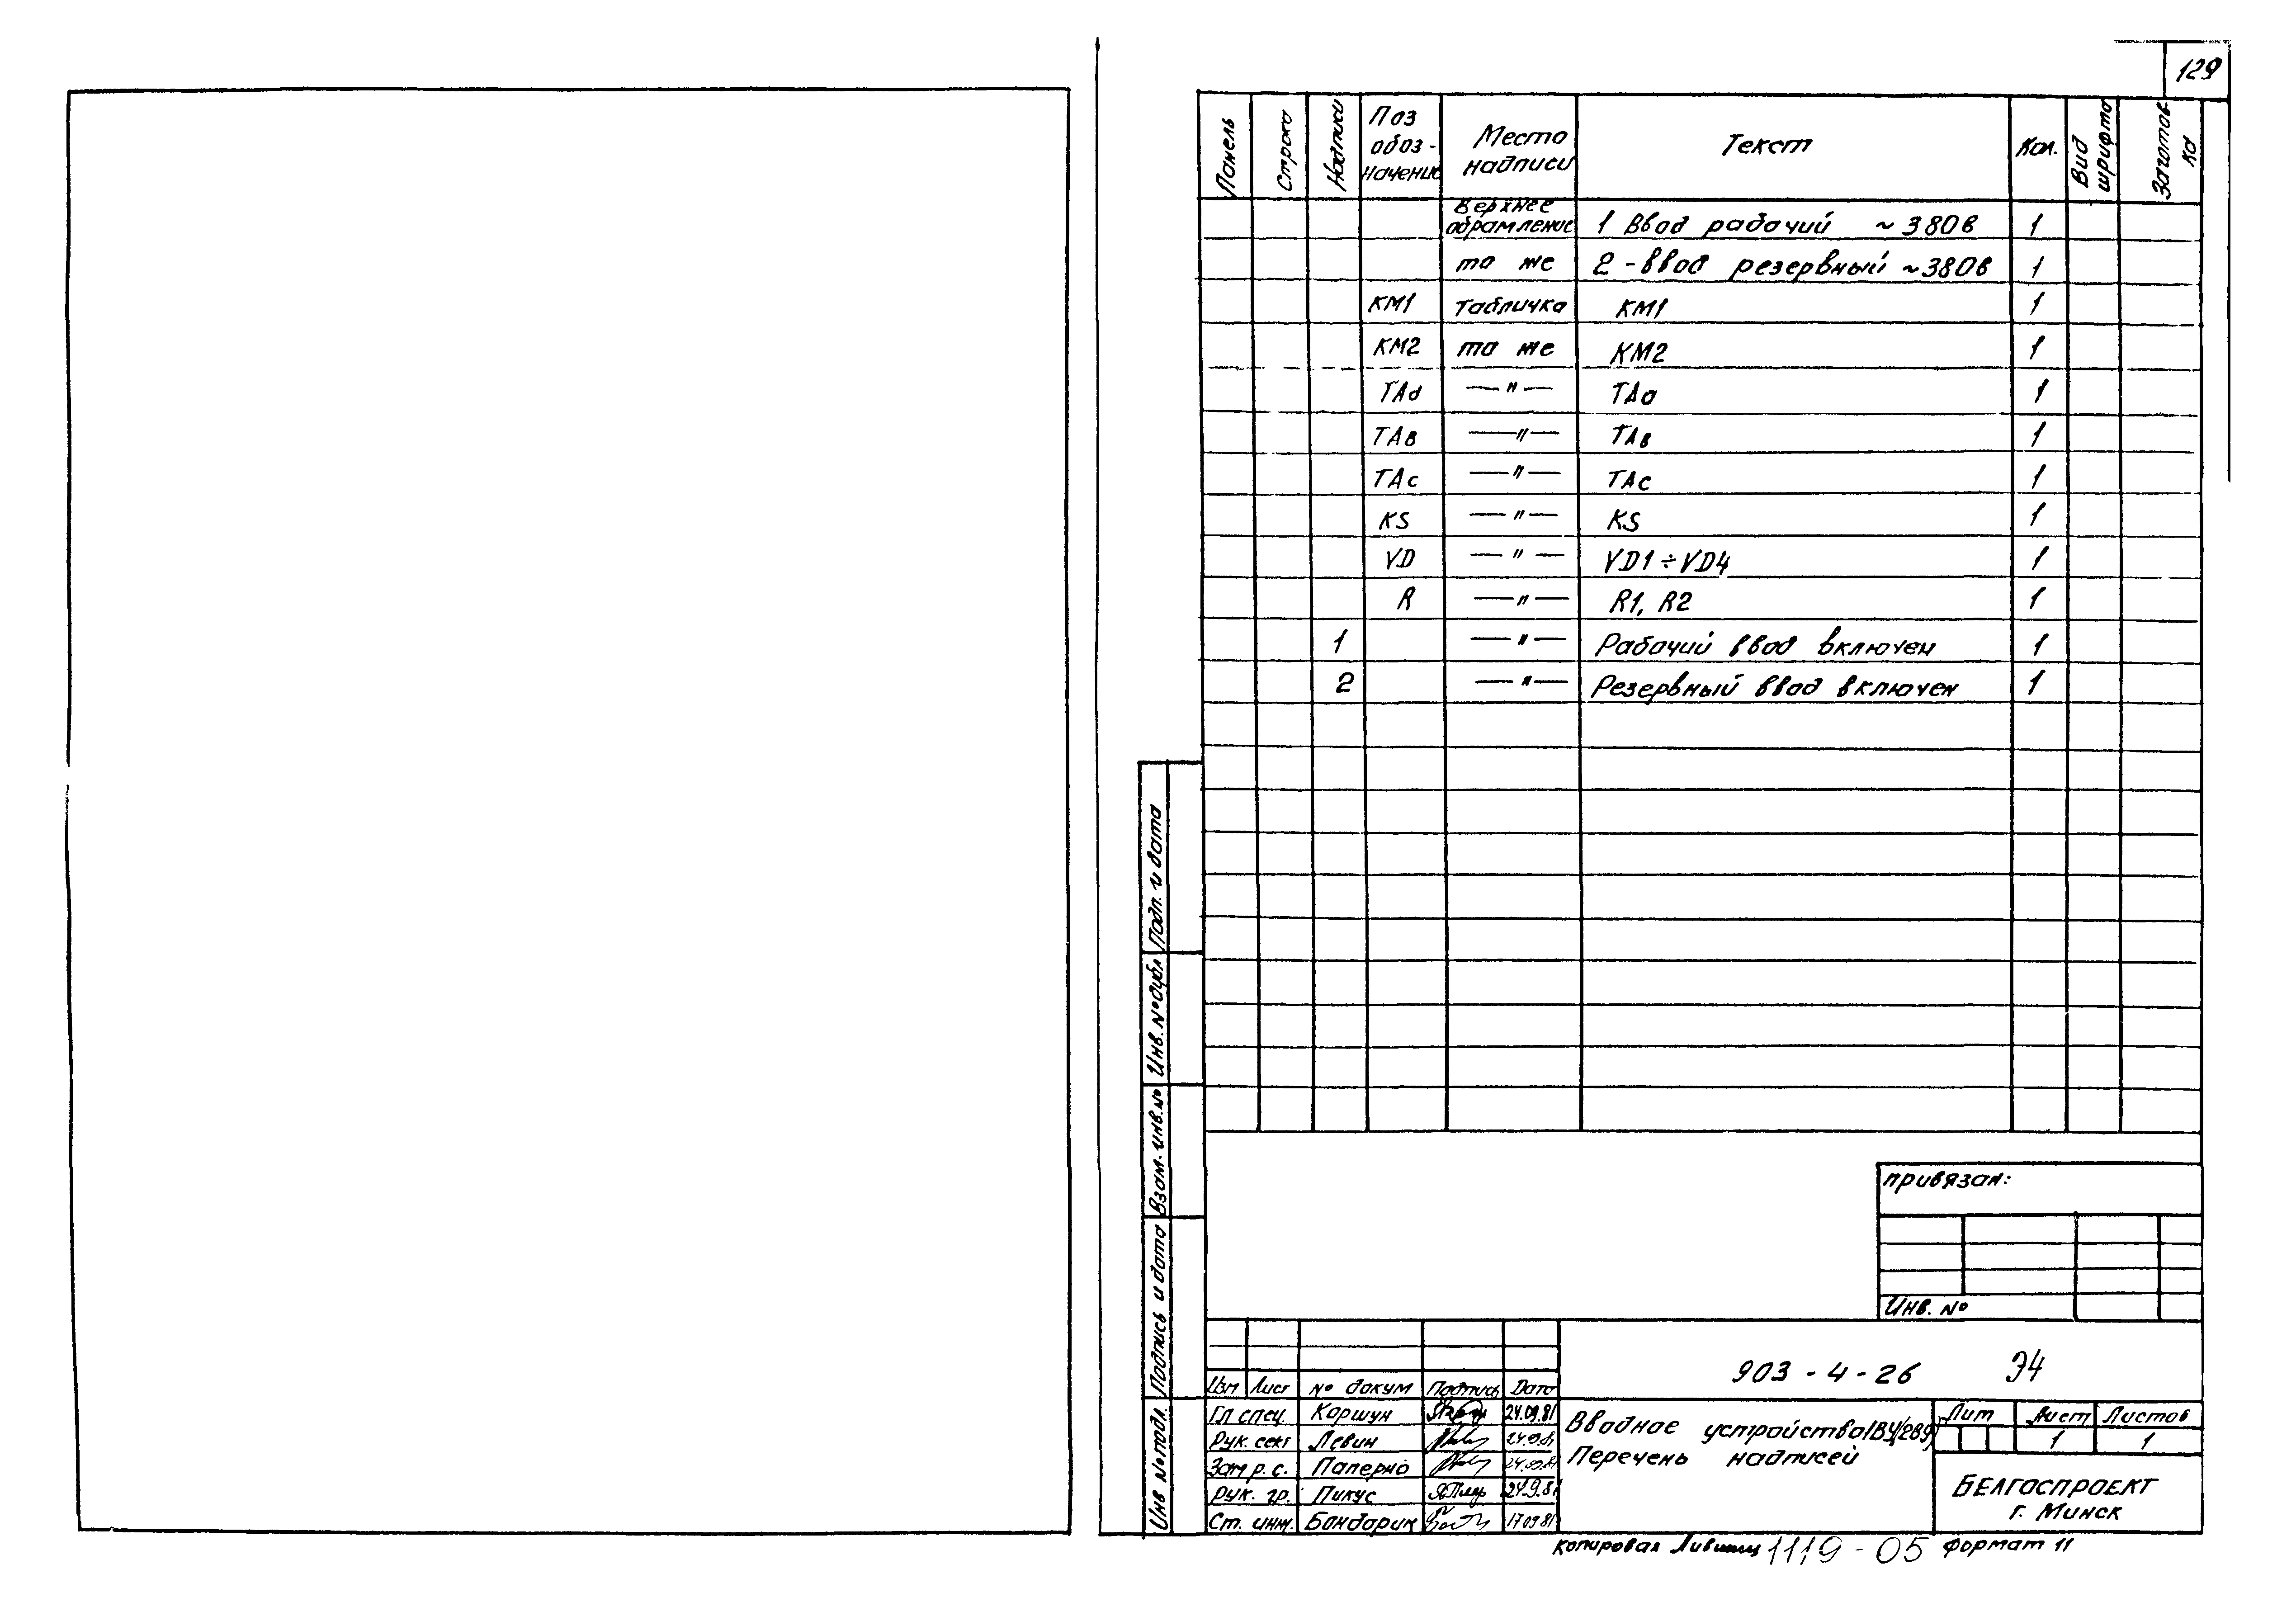 129
Панель Строка Надписи Поз обоз- начение Место надписи Текст Кол. Вид шрифта Заготов- ка
Верхнее обрамление 1 Ввод рабочий ~380в 1
то же 2 - ввод резервный ~380в 1
КМ1 табличка КМ1 1
КМ2 то же КМ2 1
ТАа —"— ТАа 1
ТАв —"— ТАв 1
ТАс —"— ТАс 1
KS —"— KS 1
VD —"— VD1÷VD4 1
R —"— R1, R2 1
1 —"— Рабочий ввод включен 1
2 —"— Резервный ввод включен 1
Подп. и дата
Инв. № дубл
Взам. инв. №
Подпись и дата
Инв № подл.
привязан:
Инв. №
903 - 4 - 26 Э4
Изм Лист № докум Подпись Дата
Гл спец. Коршун 24.09.81
Рук. сект Левин 24.09.81
Зам р. с. Паперно 24.09.81
Рук. гр. Пикус 24.9.81
Ст. инж. Бондарик 17.09.81
Вводное устройство
Перечень надписей
Лит Лист Листов
1 1
БЕЛГОСПРОЕКТ
г. Минск
копировал Лившиц 1119 - 05 формат 11